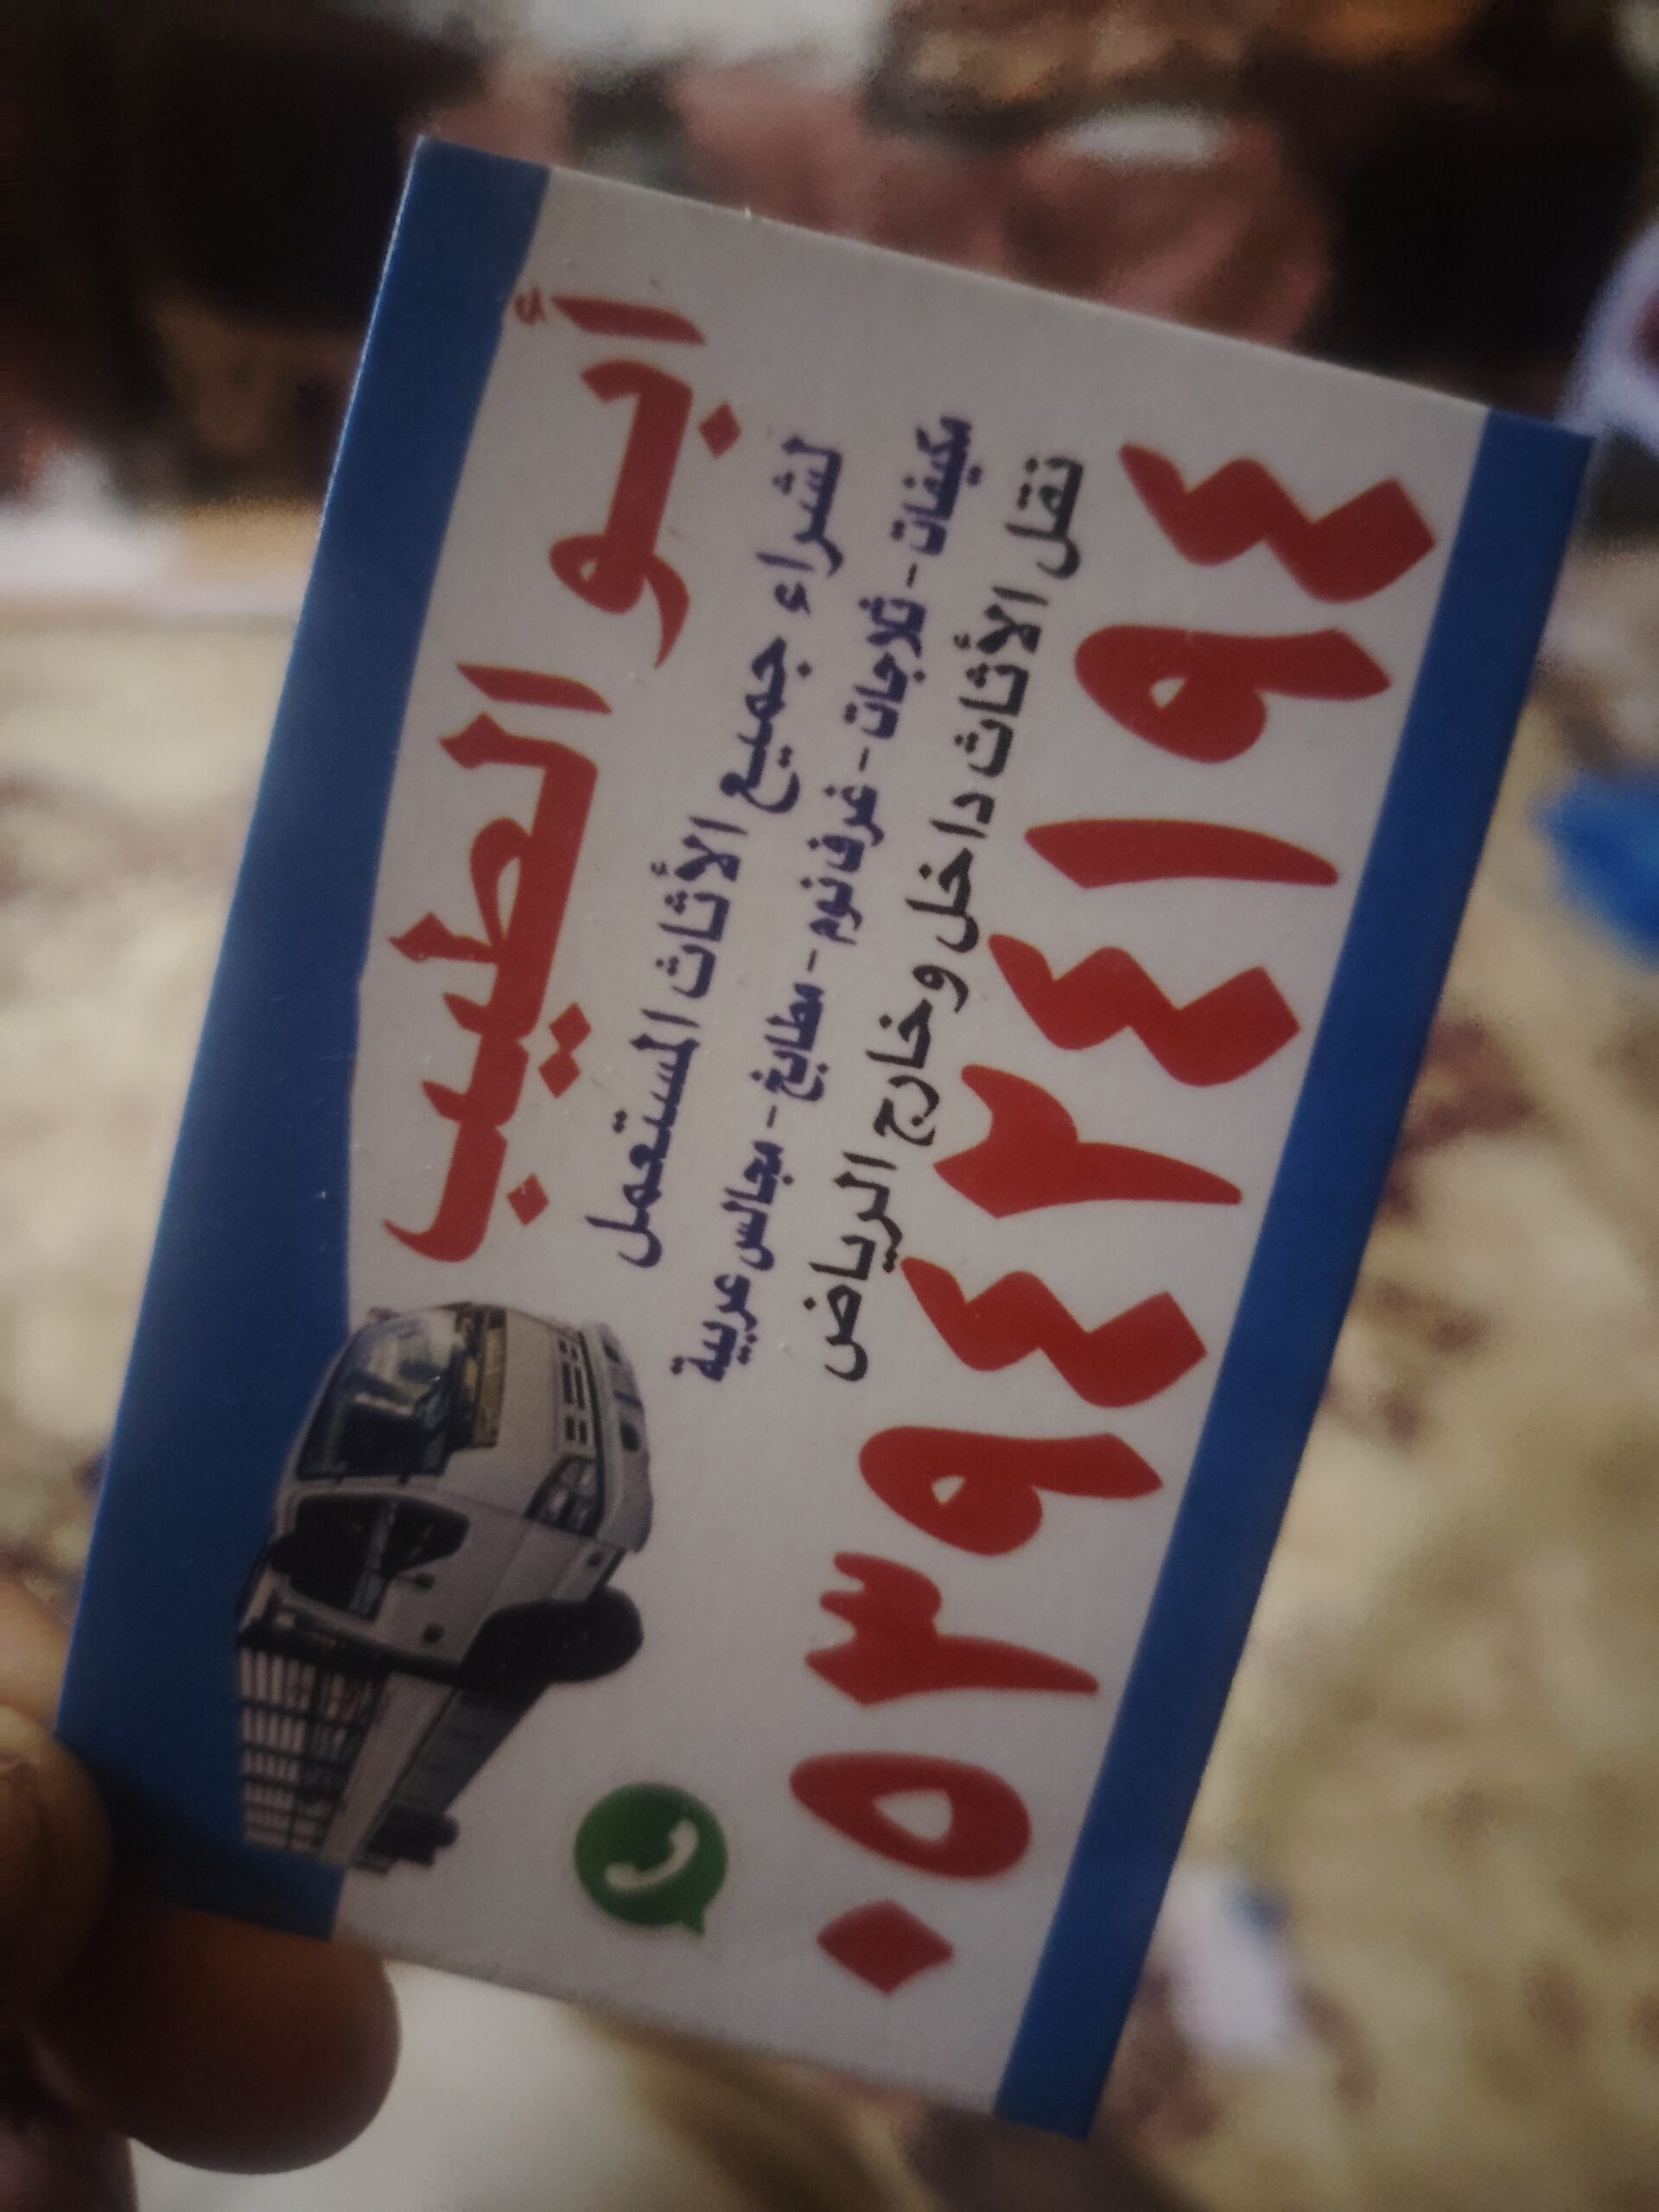 أبو الطيب
لشراء جميع الأثاث المستعمل
مكيفات - ثلاجات - غرف نوم - مطابخ - مجالس عربية
نقل الأثاث داخل وخارج الرياض
٠٥٣٩٤٢٤١٩٤